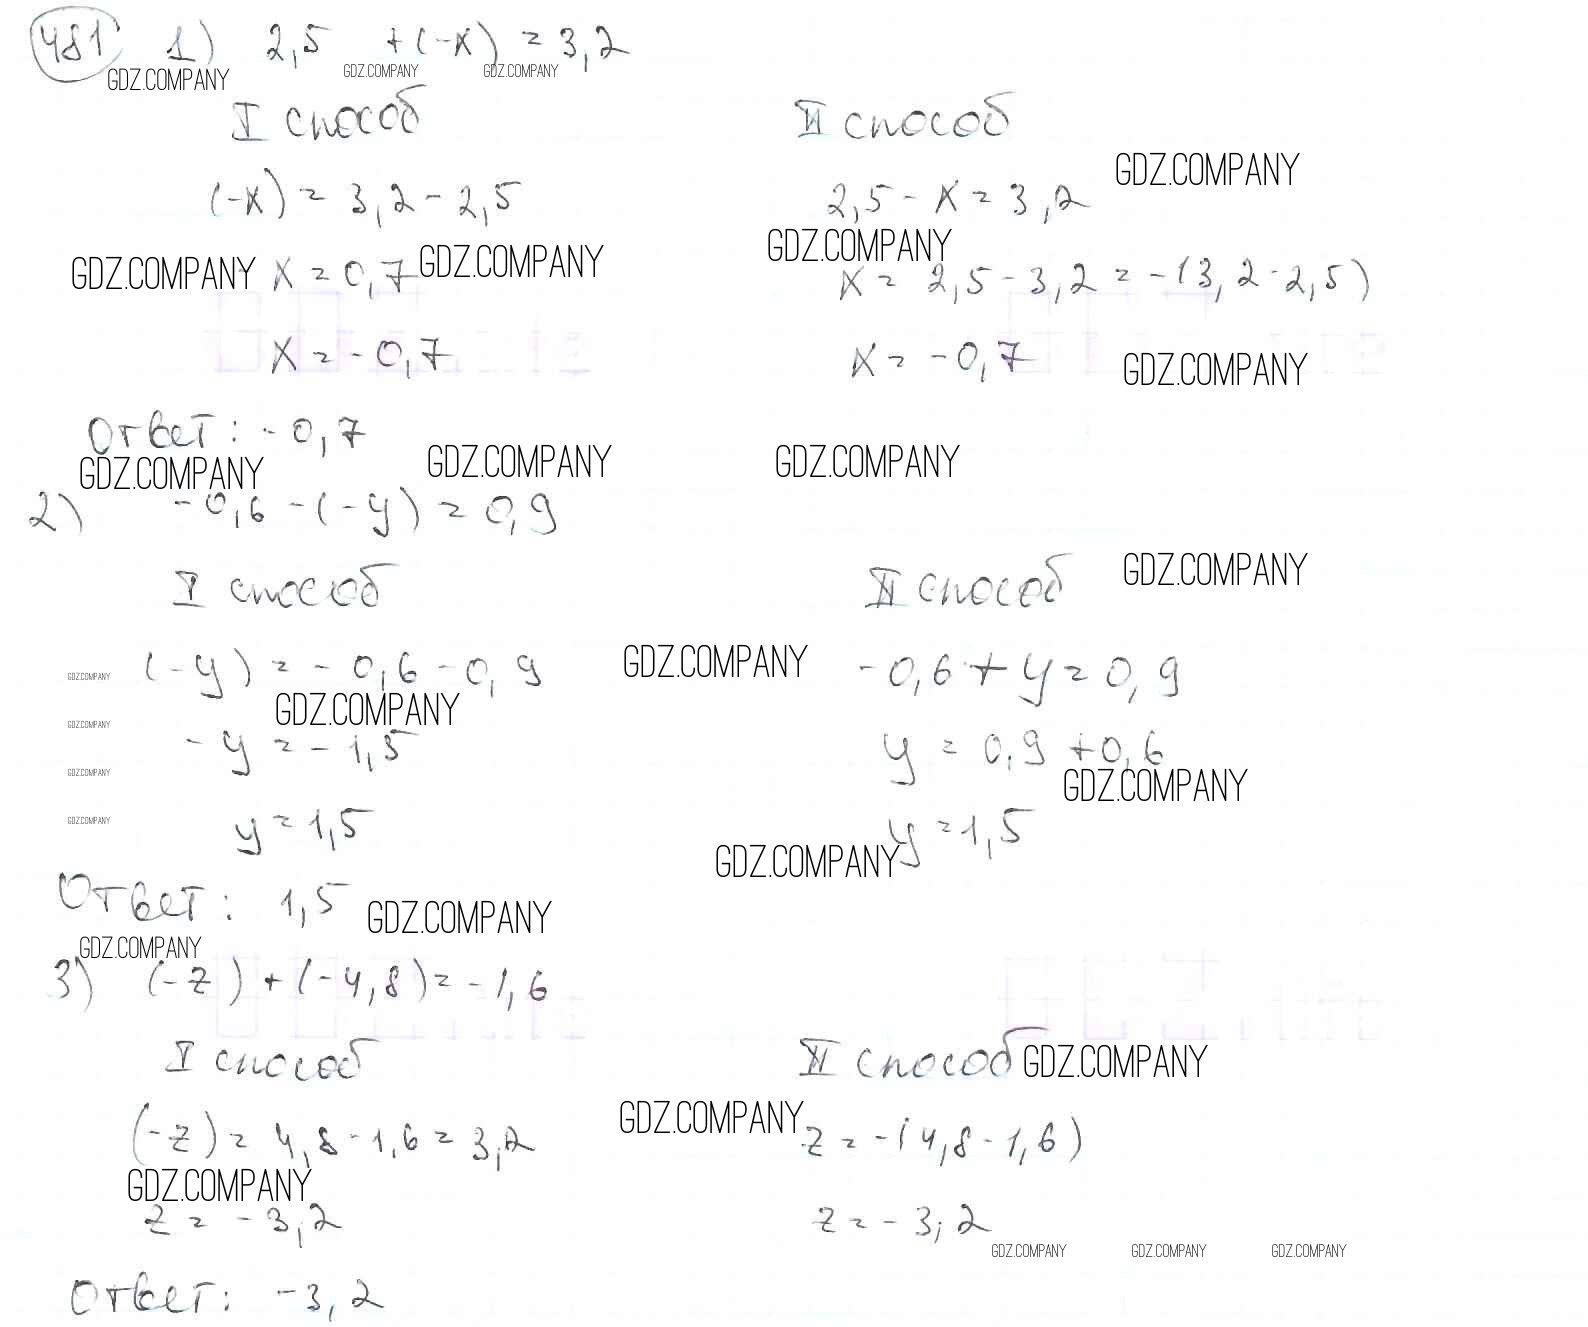 481 1) 2,5 +(-x) = 3,2
GDZ.COMPANY GDZ.COMPANY GDZ.COMPANY
I способ II способ
GDZ.COMPANY
(-x) = 3,2 - 2,5 2,5 - x = 3,2
GDZ.COMPANY x = 0,7 GDZ.COMPANY GDZ.COMPANY
x = 2,5 - 3,2 = -(3,2-2,5)
x = -0,7 x = -0,7 GDZ.COMPANY
Ответ: -0,7
GDZ.COMPANY GDZ.COMPANY GDZ.COMPANY
2) -0,6 -(-y) = 0,9
I способ II способ GDZ.COMPANY
GDZ.COMPANY (-y) = -0,6 - 0,9 GDZ.COMPANY -0,6 + y = 0,9
GDZ.COMPANY GDZ.COMPANY
-y = -1,5 y = 0,9 + 0,6
GDZ.COMPANY GDZ.COMPANY
GDZ.COMPANY y = 1,5 y = 1,5
GDZ.COMPANY
Ответ: 1,5 GDZ.COMPANY
GDZ.COMPANY
3) (-z) + (-4,8) = -1,6
I способ II способ GDZ.COMPANY
(-z) = 4,8 - 1,6 = 3,2 GDZ.COMPANY z = -(4,8 - 1,6)
GDZ.COMPANY
z = -3,2 z = -3,2
GDZ.COMPANY GDZ.COMPANY GDZ.COMPANY
Ответ: -3,2